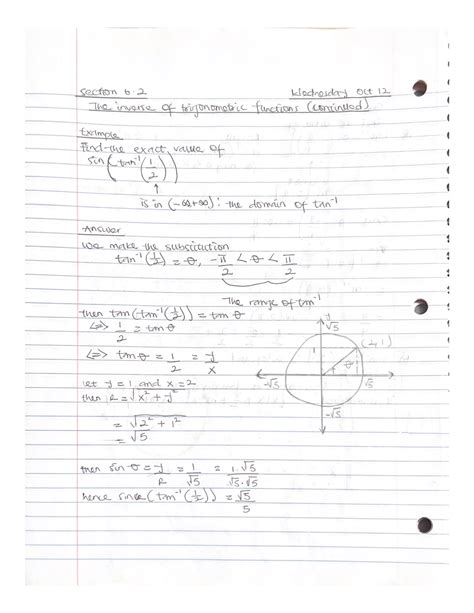 Section 6.2 Wednesday Oct 12
The inverse of trigonometric functions (continued)
Example
Find the exact value of
sin(tan⁻¹(1/2))
↑
is in (-∞+∞): the domain of tan⁻¹
Answer
We make the substitution
tan⁻¹(1/2) = θ, -π/2 < θ < π/2
The range of tan⁻¹
then tan(tan⁻¹(1/2)) = tan θ
<=> 1/2 = tan θ
<=> tan θ = 1/2 = y/x
let y = 1 and x = 2
then R = √x² + y²
= √2² + 1²
= √5
y
√5
(2,1)
1
θ
-√5
√5
-√5
then sin θ = y/R = 1/√5 = 1·√5/√5·√5
hence since (tan⁻¹(1/2)) = √5/5